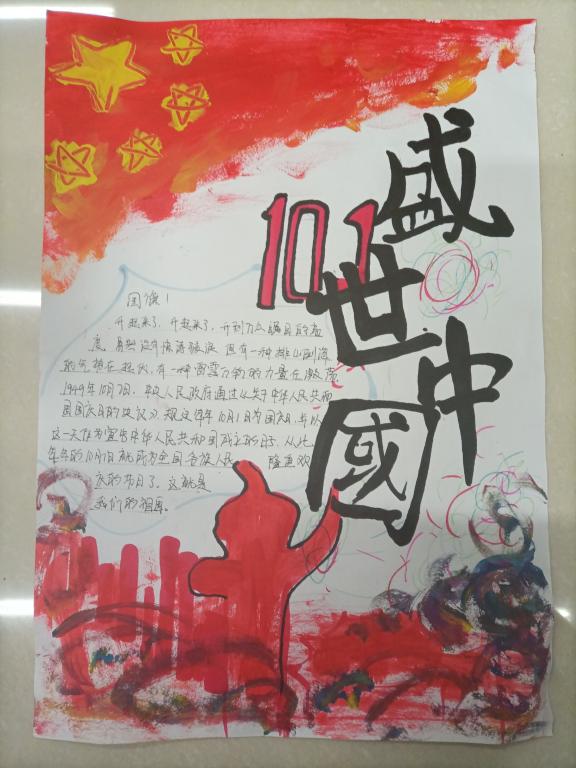 盛世中國
10.1
国旗！
升起来了，升起来了，升到万众瞩目的高
度 虽然没有
但有一种排山倒海
的气势在起伏，有一种雷霆万钧的力量在激荡
1949年10月7日，中央人民政府通过《关于中华人民共和
国国庆日的决议》规定每年10月1日为国庆日，并以
这一天作为宣告中华人民共和国成立的日子。从此，
年的10月1日就成为全国各族人民 隆重欢
庆的节日了。这就是
我们的祖国。